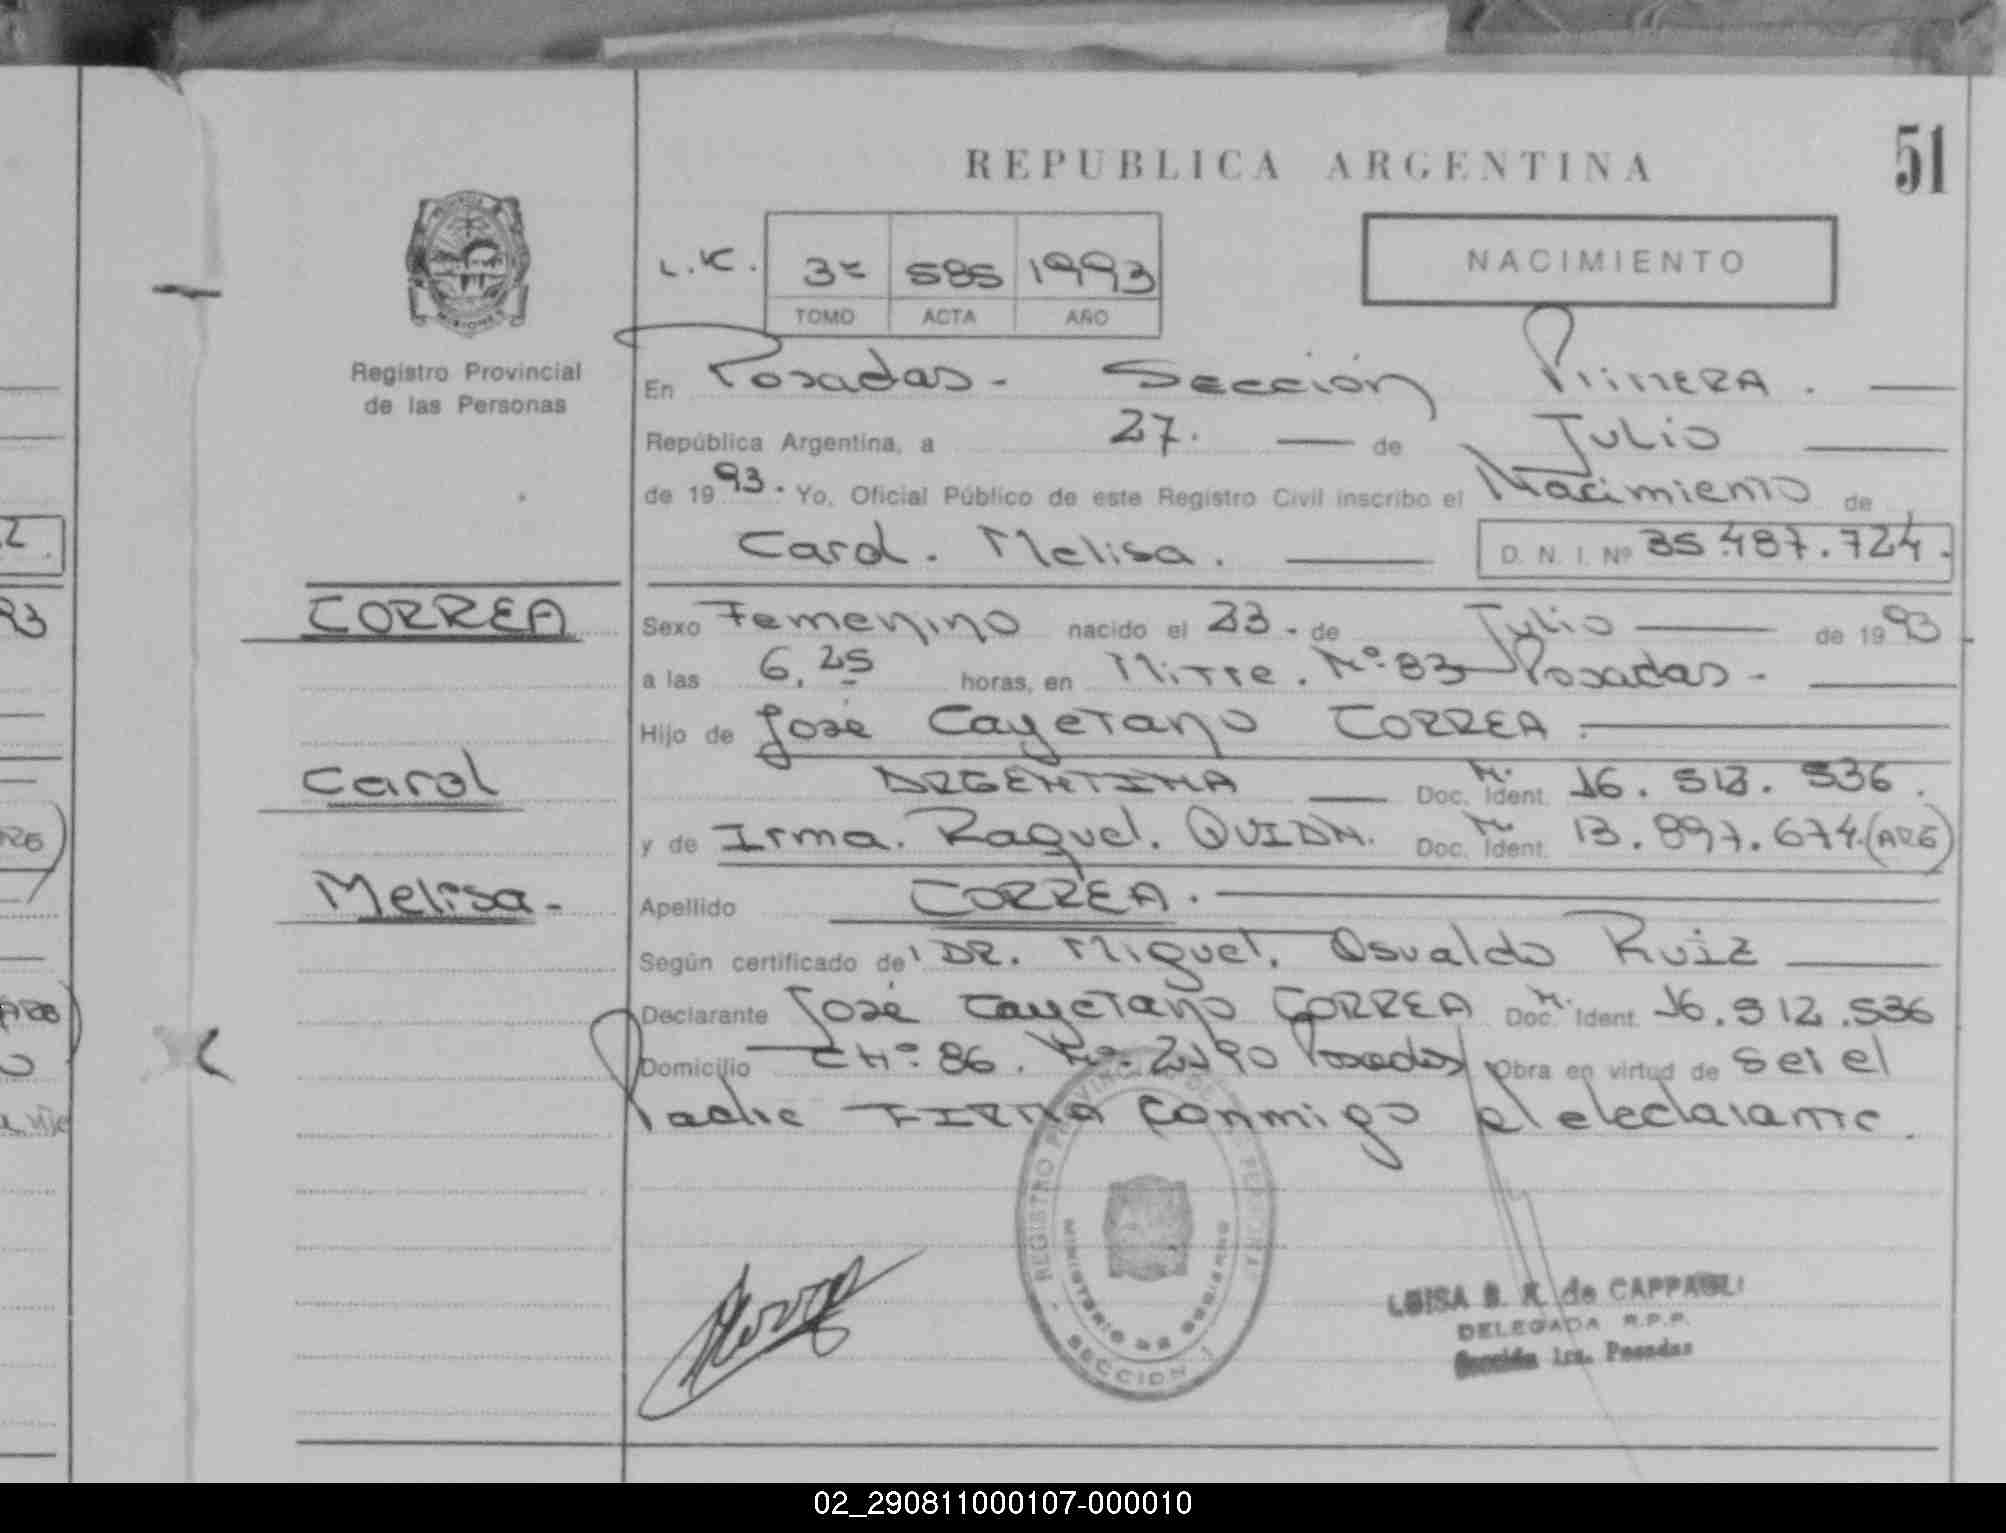 REPUBLICA ARGENTINA
51
L.K. 3º 585 1993
TOMO ACTA AÑO
NACIMIENTO
MISIONES
Registro Provincial
de las Personas
En Posadas - Sección Primera.
República Argentina, a 27. de Julio
de 1993. Yo, Oficial Público de este Registro Civil inscribo el Nacimiento de
Carol. Melisa. D. N. I. Nº 35.487.724.
CORREA
Sexo Femenino nacido el 23. de Julio de 1993
a las 6.25 horas, en Mitre. Nº 83 Posadas -
Hijo de José Cayetano CORREA.
Carol
ARGENTINA Doc. Ident. M. 16. 512. 536.
y de Irma. Raquel. Doc. Ident. 13. 897. 674. (ARG)
Melisa -
Apellido CORREA.
Según certificado de DR. Miguel. Osvaldo Ruiz
Declarante José Cayetano CORREA Doc. Ident. M. 16.512.536
Domicilio CHº 86. Posadas Obra en virtud de ser el
Padre FIRMA conmigo el declarante.
REGISTRO PROVINCIAL DE LAS PERSONAS
MINISTERIO DE GOBIERNO
SECCION 1
LUISA B. K. de CAPPAGLI
DELEGADA R.P.P.
Sección 1ra. Posadas
2.
93
ARG)
ARG)
02_290811000107-000010